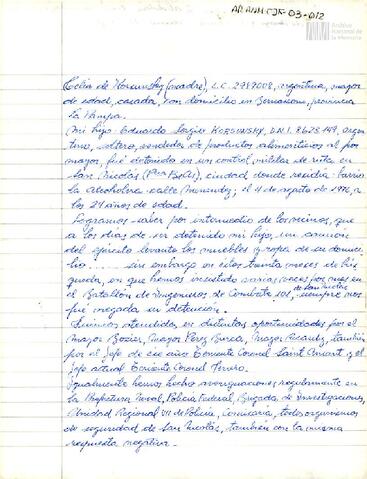 AR ANM CJF-03-012
Archivo
Nacional de
la Memoria
Celia de Korsunsky (madre), L.C. 2989008, argentina, mayor
de edad, casada, con domicilio en Bernasconi, provincia
La Pampa.
Mi hijo: Eduardo Sergio KORSUNSKY, D.N.I. 8.628.149, argen-
tino, soltero, vendedor de productos alimenticios al por
mayor, fué detenido en un control militar de ruta en
San Nicolás (Pcia BsAs), ciudad donde residía: barrio
la Alcoholera calle Menendez; el 4 de agosto de 1976, a
los 24 años de edad.
Logramos saber por intermedio de los vecinos, que
a los días de ser detenido mi hijo, un camión
del ejército levantó los muebles y ropa de su domici-
lio ..... sin embargo en éstos treinta meses de bús-
queda, en que hemos insistido varias veces por mes en
el Batallón de Ingenieros de Combate 101, de San Nicolás siempre nos
fue negada su detención.
Fuimos atendidos en distintas oportunidades por el
Mayor Bozier, Mayor Perez, Mayor, también
por el Jefe de ese año Teniente Coronel Saint Amant y el
jefe actual Teniente Coronel.
Igualmente hemos hecho averiguaciones regularmente en
la Prefectura Naval, Policía Federal, Brigada de Investigaciones,
Unidad Regional VII de Policía, Comisaría, todos organismos
de seguridad de San Nicolás, también con la misma
respuesta negativa.